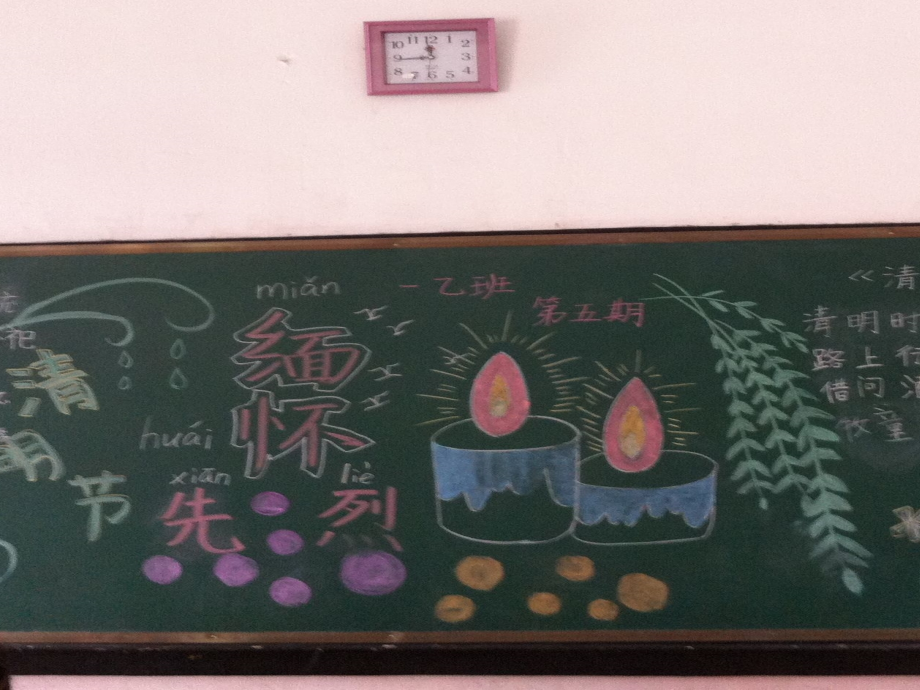 11 12 1
10 2
9 3
8 4
7 6 5
祀
清
明
节
miǎn
缅
huái
怀
xiān liè
先烈
一乙班
第五期
《清
清明时
路上行
借问酒
牧童